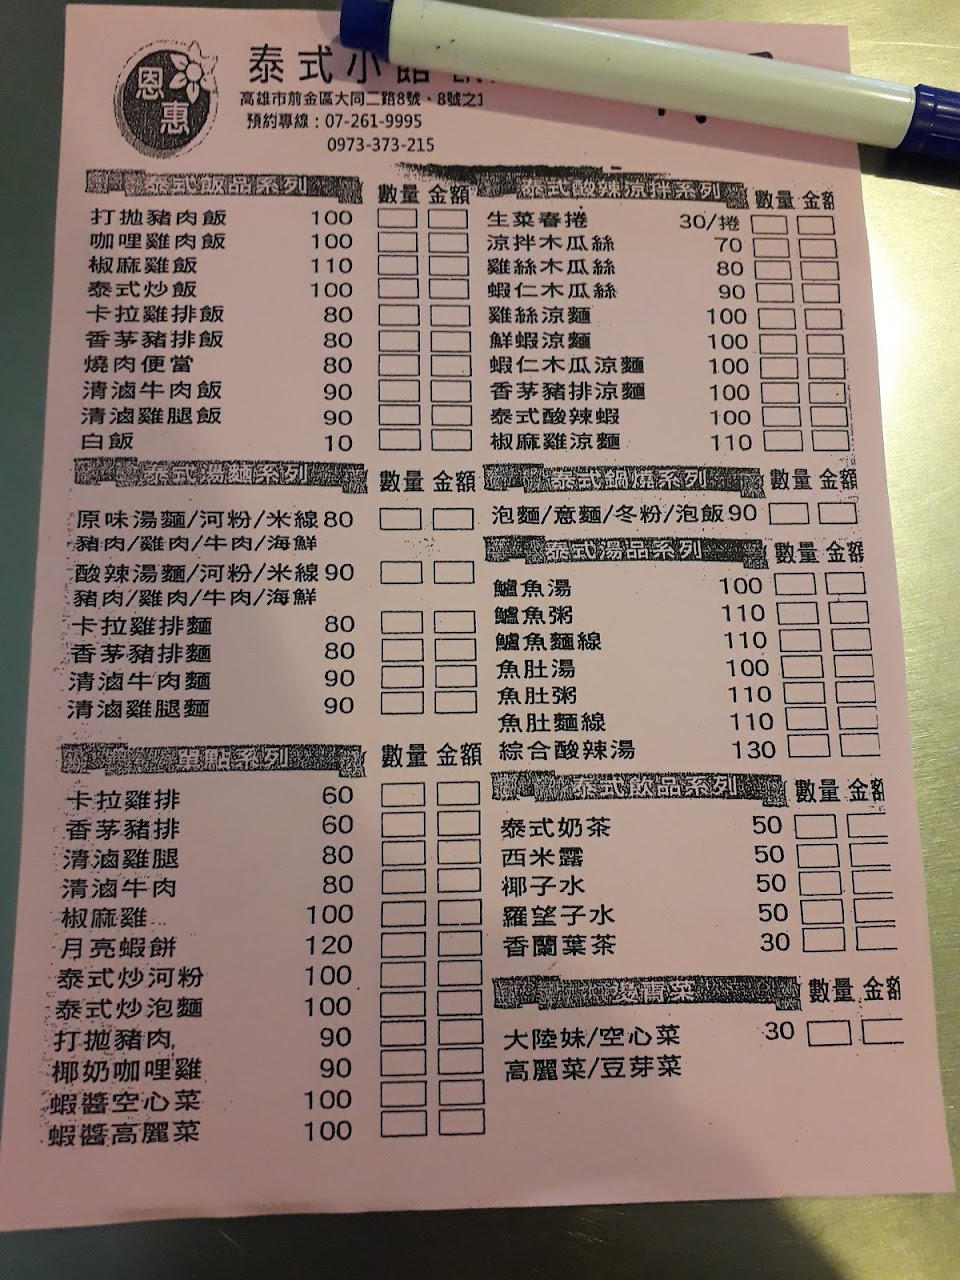 恩惠
泰式小館
高雄市前金區大同二路8號、8號之1
預約專線：07-261-9995
0973-373-215
泰式飯品系列 數量 金額
打拋豬肉飯 100
咖哩雞肉飯 100
椒麻雞飯 110
泰式炒飯 100
卡拉雞排飯 80
香茅豬排飯 80
燒肉便當 80
清滷牛肉飯 90
清滷雞腿飯 90
白飯 10
泰式湯麵系列 數量 金額
原味湯麵/河粉/米線 80
豬肉/雞肉/牛肉/海鮮
酸辣湯麵/河粉/米線 90
豬肉/雞肉/牛肉/海鮮
卡拉雞排麵 80
香茅豬排麵 80
清滷牛肉麵 90
清滷雞腿麵 90
單點系列 數量 金額
卡拉雞排 60
香茅豬排 60
清滷雞腿 80
清滷牛肉 80
椒麻雞 100
月亮蝦餅 120
泰式炒河粉 100
泰式炒泡麵 100
打拋豬肉 90
椰奶咖哩雞 90
蝦醬空心菜 100
蝦醬高麗菜 100
泰式酸辣涼拌系列 數量 金額
生菜春捲 30/捲
涼拌木瓜絲 70
雞絲木瓜絲 80
蝦仁木瓜絲 90
雞絲涼麵 100
鮮蝦涼麵 100
蝦仁木瓜涼麵 100
香茅豬排涼麵 100
泰式酸辣蝦 100
椒麻雞涼麵 110
泰式鍋燒系列 數量 金額
泡麵/意麵/冬粉/泡飯 90
泰式湯品系列 數量 金額
鱸魚湯 100
鱸魚粥 110
鱸魚麵線 110
魚肚湯 100
魚肚粥 110
魚肚麵線 110
綜合酸辣湯 130
泰式飲品系列 數量 金額
泰式奶茶 50
西米露 50
椰子水 50
羅望子水 50
香蘭葉茶 30
燙青菜 數量 金額
大陸妹/空心菜 30
高麗菜/豆芽菜